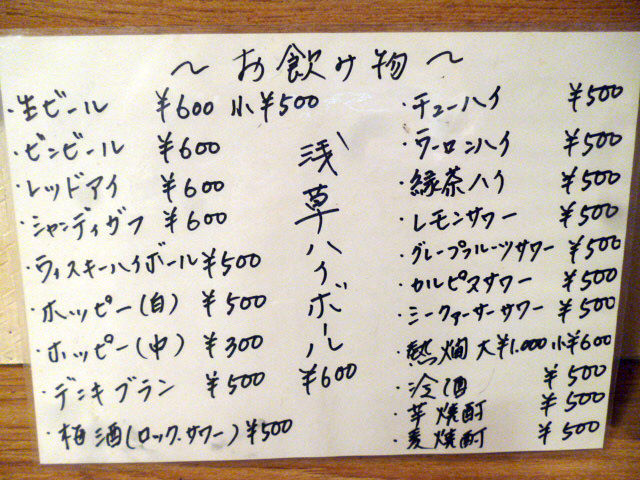 ～お飲み物～
・生ビール ¥600 小¥500
・ビンビール ¥600
・レッドアイ ¥600
・シャンディガフ ¥600
・ウィスキーハイボール ¥500
・ホッピー(白) ¥500
・ホッピー(中) ¥300
・デンキブラン ¥500
・梅酒(ロック.サワー) ¥500
浅草ハイボール
¥600
・チューハイ ¥500
・ウーロンハイ ¥500
・緑茶ハイ ¥500
・レモンサワー ¥500
・グレープフルーツサワー ¥500
・カルピスサワー ¥500
・シークァーサーサワー ¥500
・熱燗 大¥1.000 小¥600
・冷酒 ¥500
・芋焼酎 ¥500
・麦焼酎 ¥500